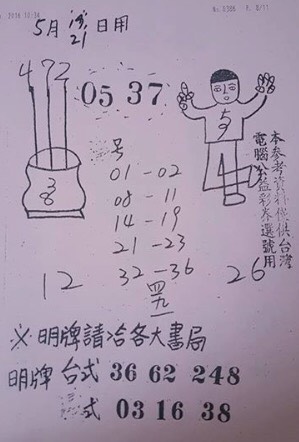 2014 10:56 No.0306 P. 8/11
5月19/21日用
472
05 37
号
01-02
08-11
14-19
21-23
32-36
38
12
26
本參考資料僅供台灣
電腦公益彩券選號用
※明牌請洽各大書局
明牌 台式 36 62 248
式 03 16 38